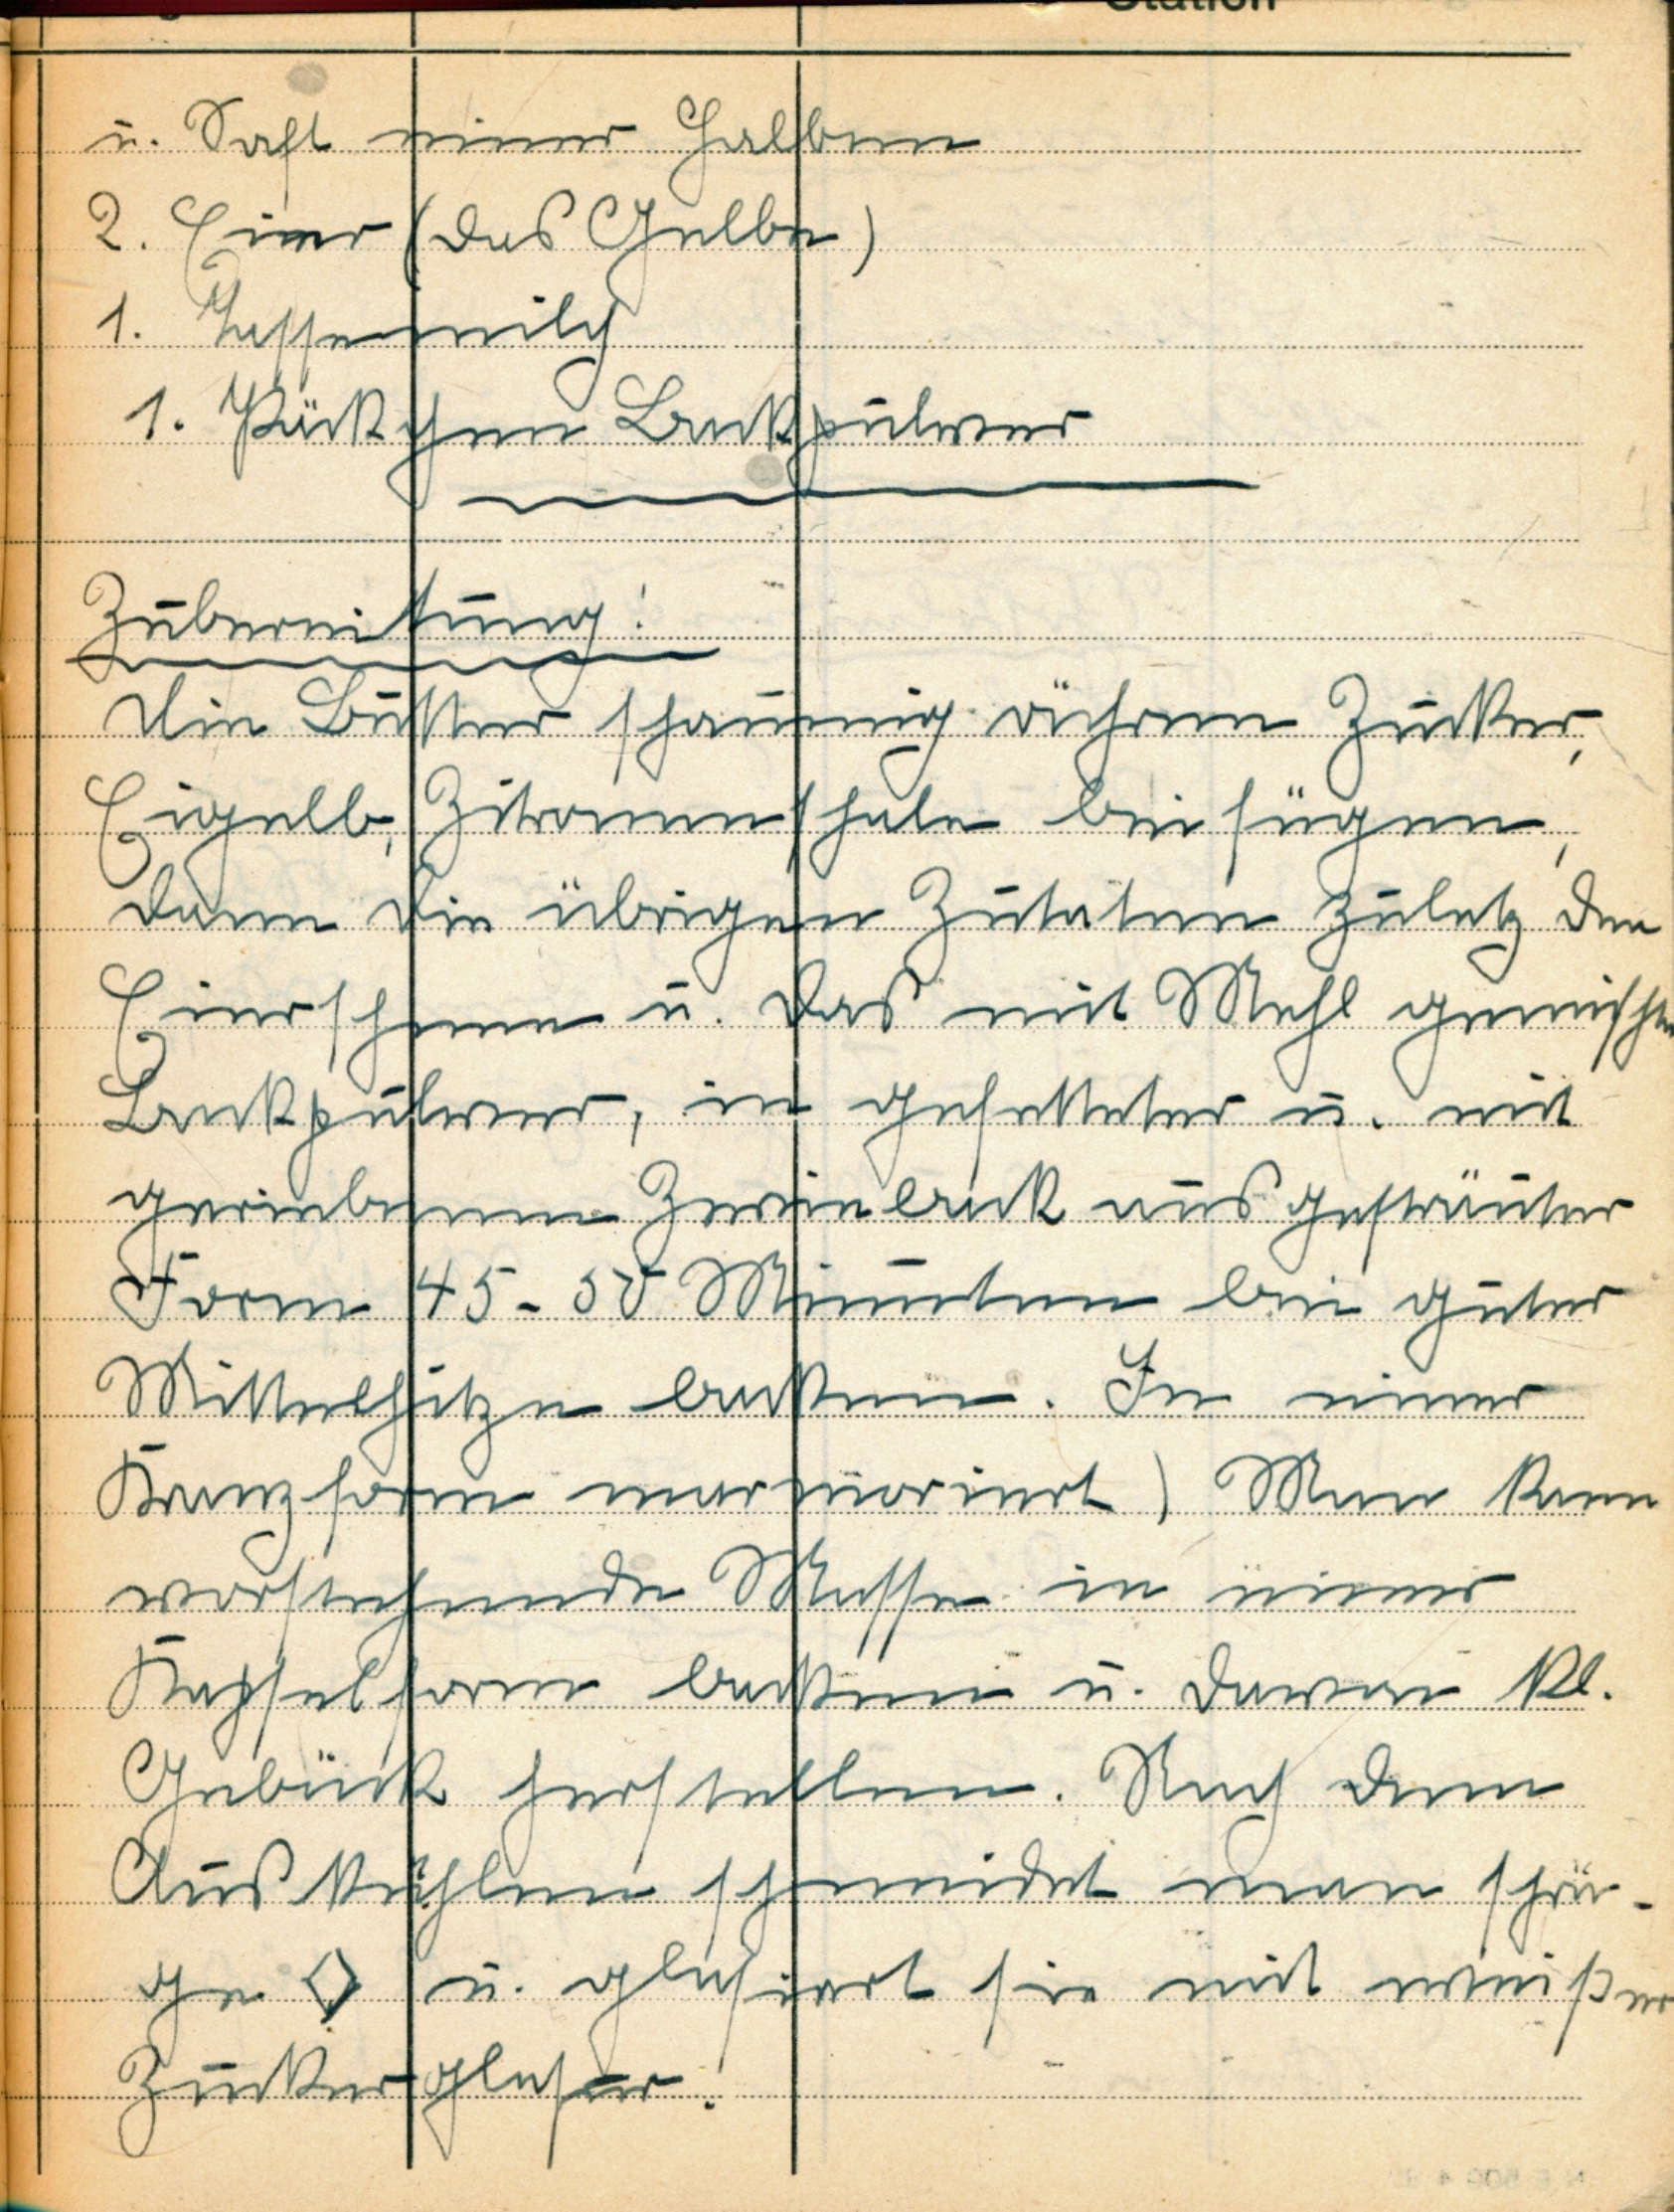 Station
u. Saft einer Halben
2. Eier (das Gelbe)
1. Tasse milch
1. Päckchen Backpulver
Zubereitung!
Die Butter schaumig rühren Zucker,
Eigelb, Zitronenschale beifügen,
dann die übrigen Zutaten zuletz den
Eierschnee u. das mit Mehl gemischte
Backpulver, in gefetteter u. mit
geriebenem Zwieback ausgestreuter
Form 45-50 Minuten bei guter
Mittelhitze backen. In einer
Kranzform marmoriert) Man kann
vorstehende Masse in einer
Kapselform backen u. davon kl.
Gebäck herstellen. Nach dem
Auskühlen schneidet man schrä-
ge ◇ u. glasiert sie mit weißer
Zuckerglasur.